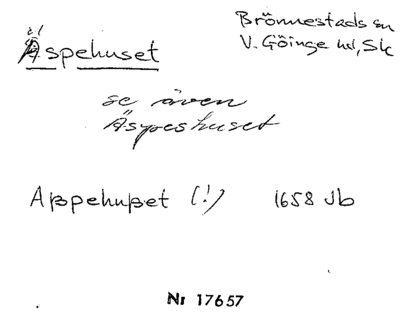 Äspehuset
Brönnestads sn
V. Göinge hd, Sk
se även
Äspeshuset
Aßpehußet (!) 1658 Jb
Nr 17657